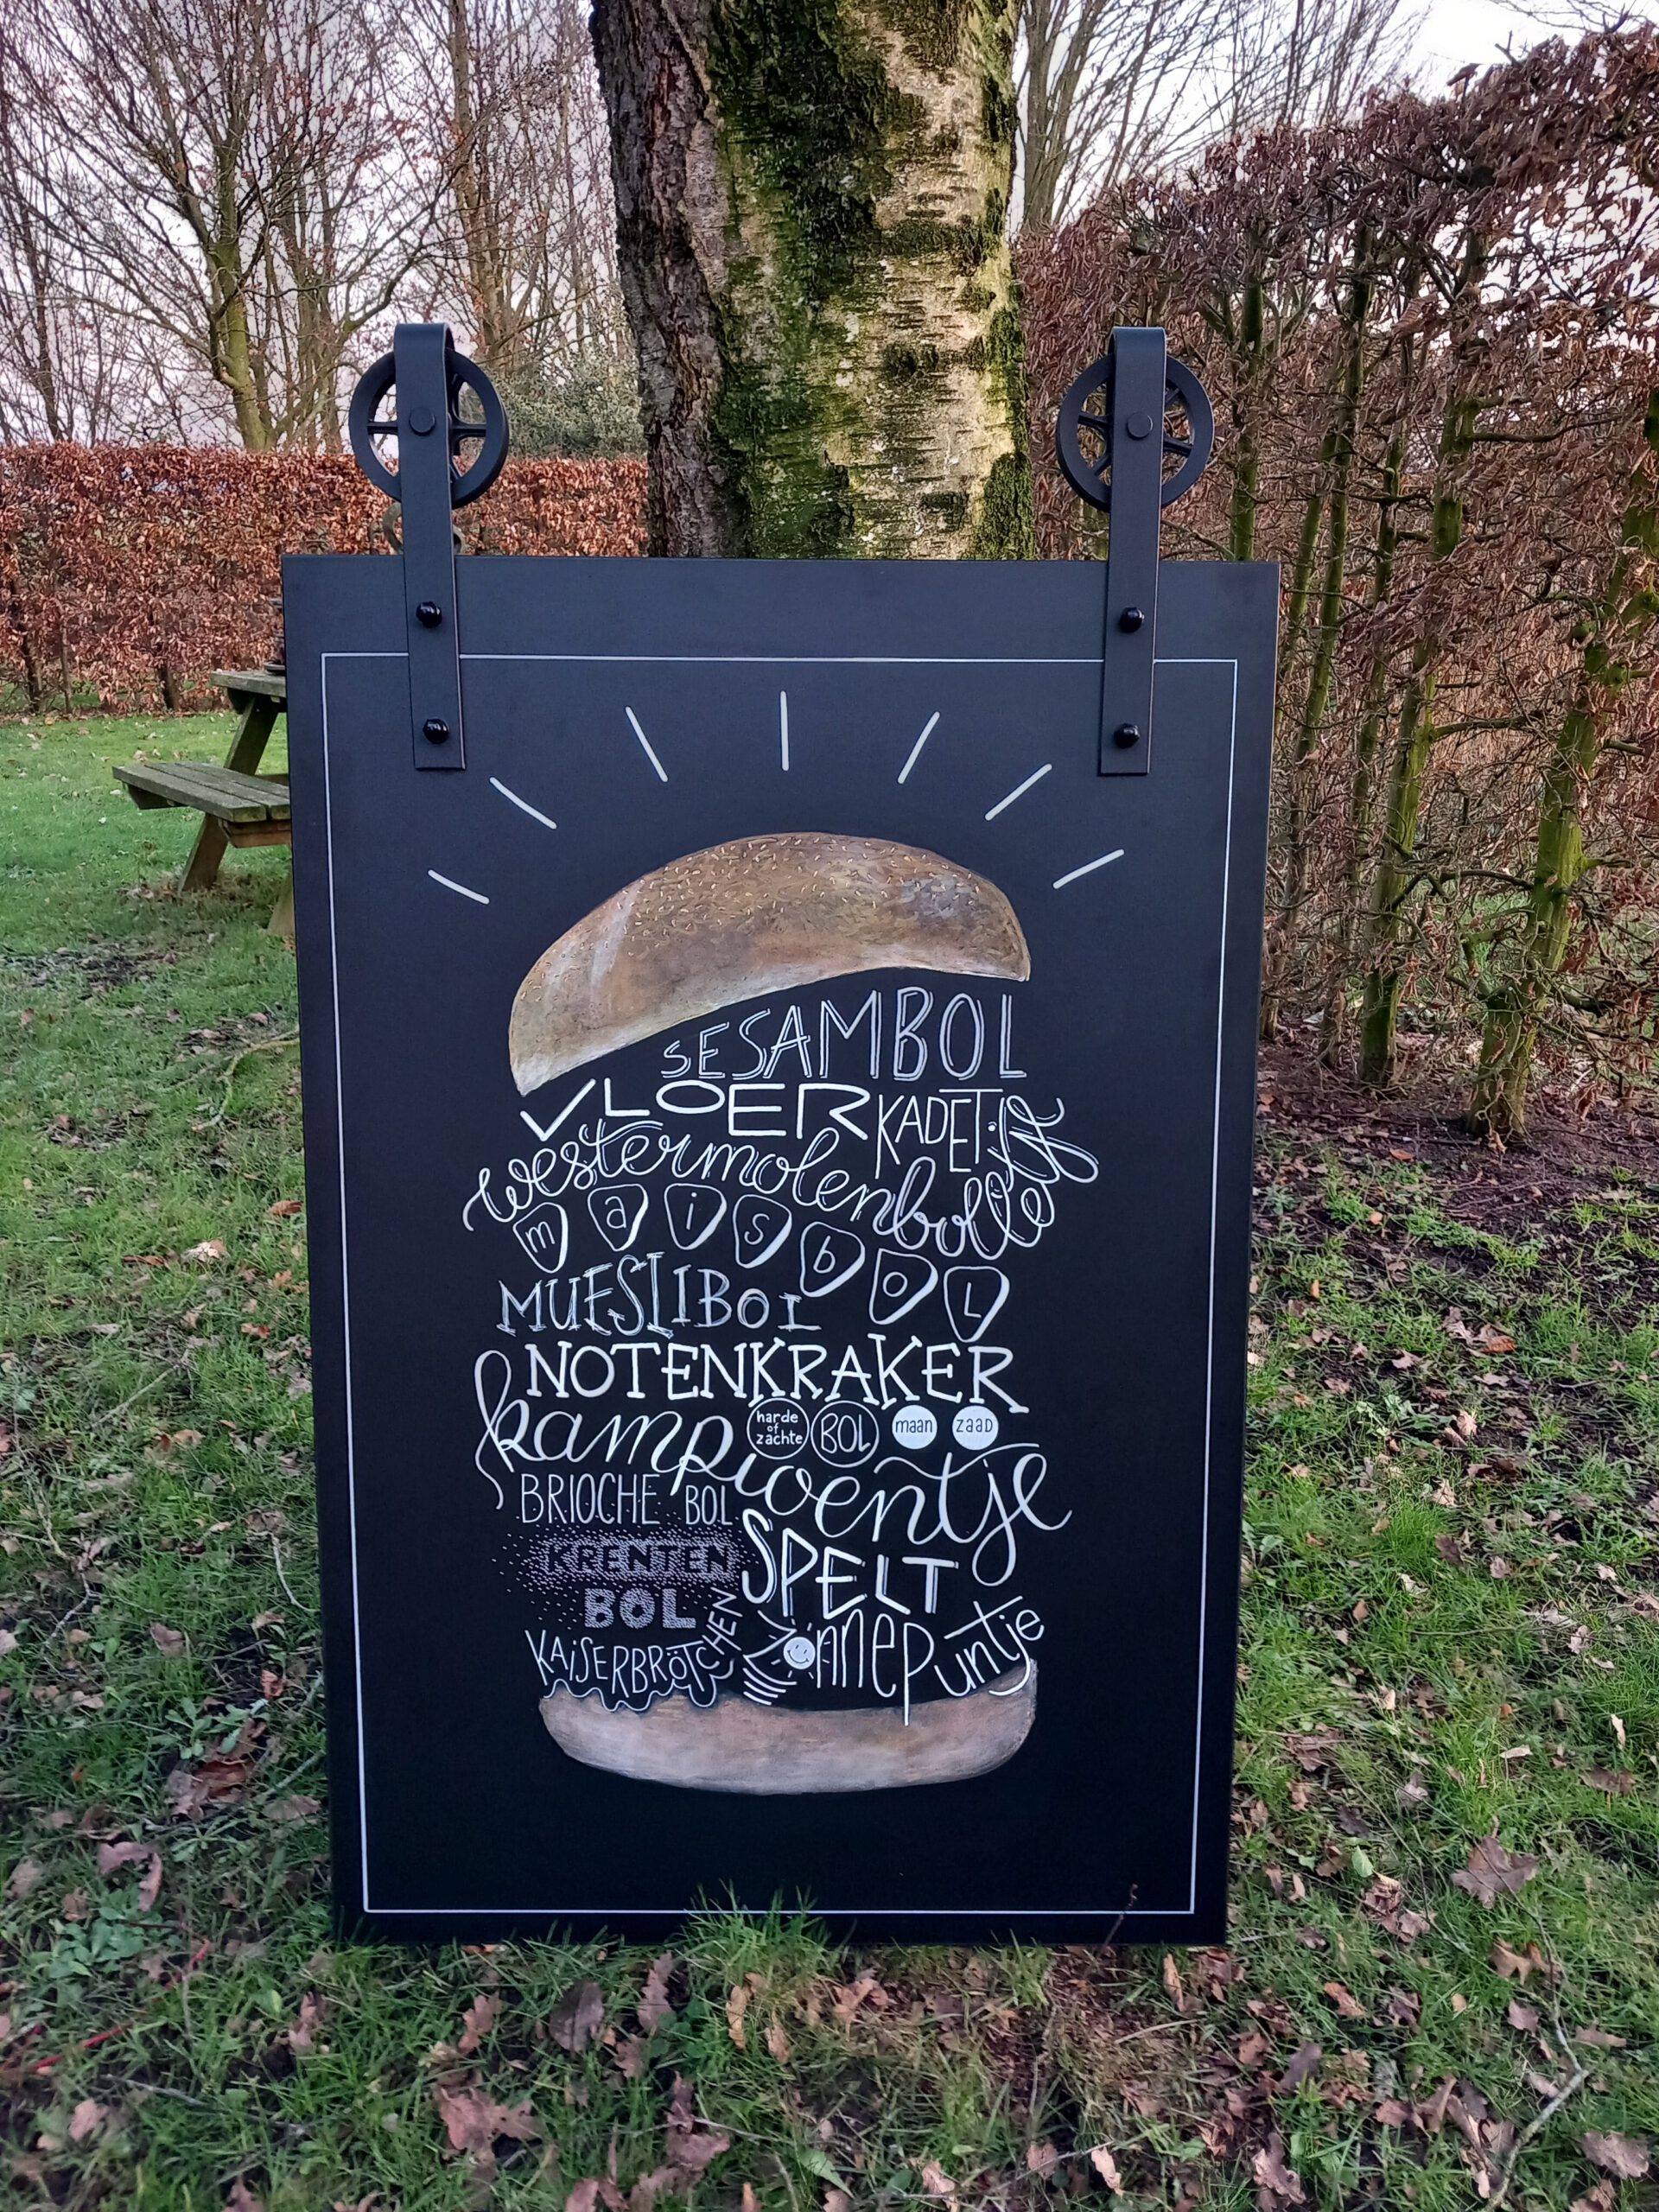 SESAMBOL
VLOERKADETJE
westermolenbollen
maisboL
MUESLIBOL
NOTENKRAKER
harde of zachte BOL maan zaad
kampioentje
BRIOCHE BOL
KRENTEN
BOL
SPELT
KAISERBRÖTCHEN
Zonnepuntje